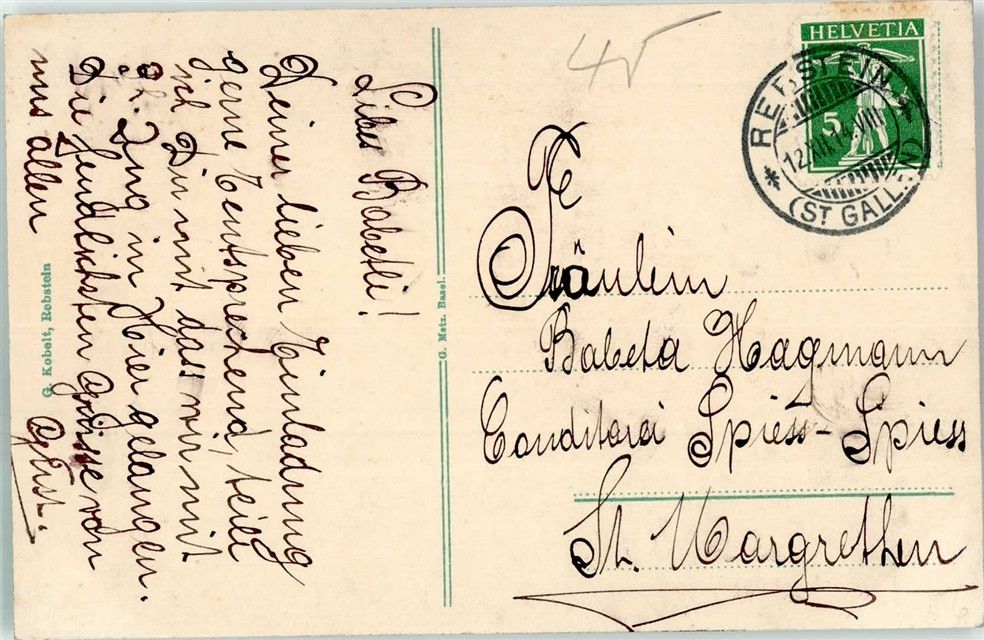 Liebes Babetli!
Deiner lieben Einladung
gerne Entsprechend, teile
ich Dir mit dass wir mit
Zug in Hier gelangen.
Die freundlichsten Grüsse von
uns allen
Gust.
G. Kobelt, Rebstein
G. Metz. Basel.
45
HELVETIA
5
REBSTEIN
12.VII.14.VIII
(ST GALLEN)
Fräulein
Babeta Hagmann
Conditorei Spiess-Spiess
St. Margrethen